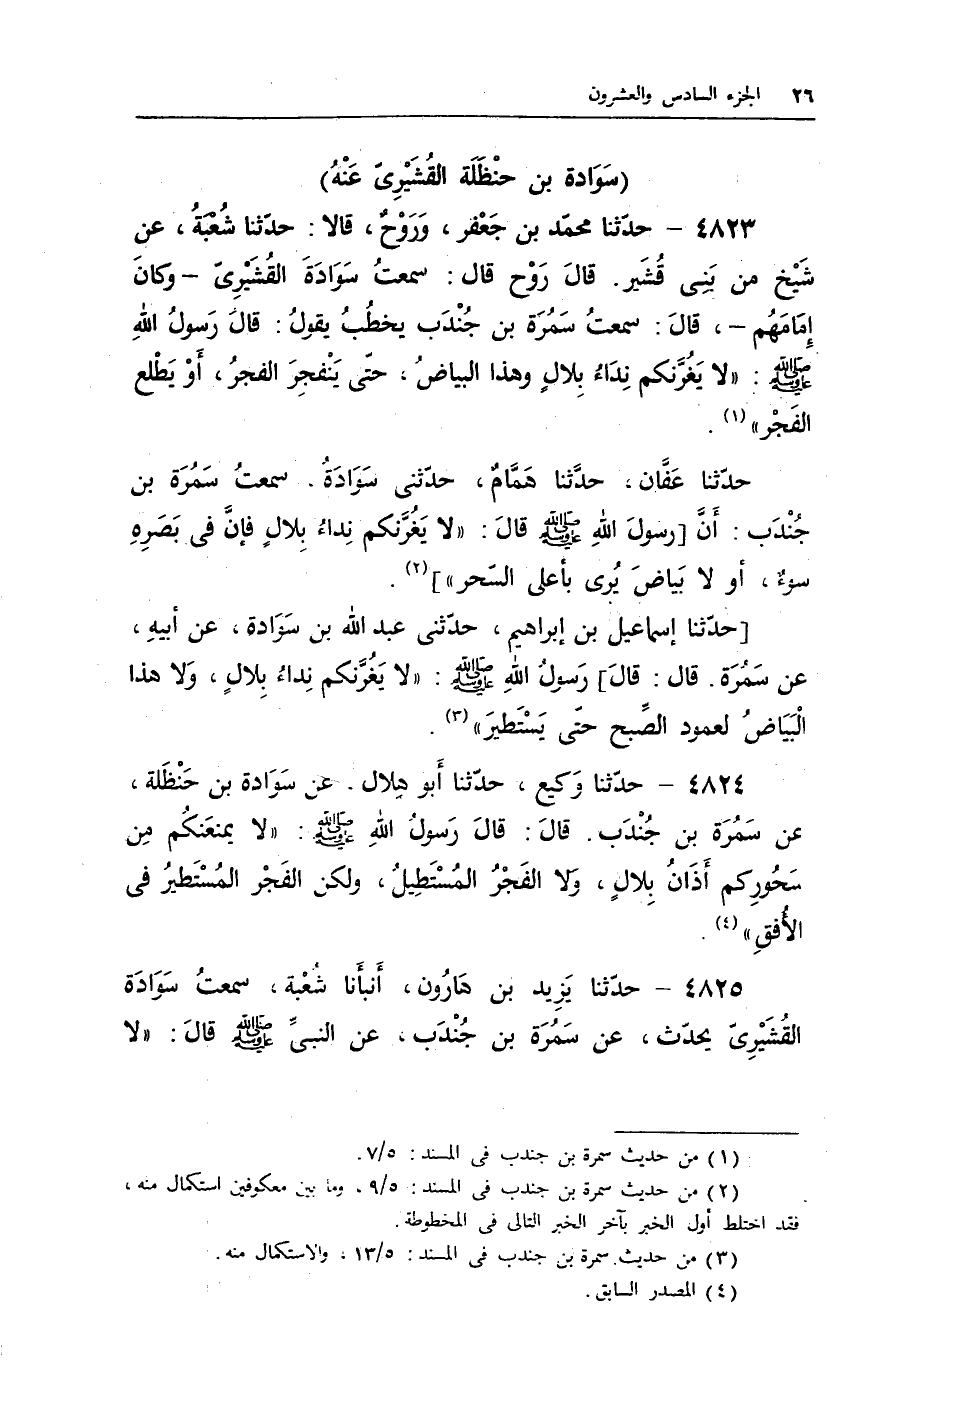 ٢٦ الجزء السادس والعشرون
(سَوَادة بن حنْظَلَة القُشَيْرِىّ عَنْهُ)
٤٨٢٣ – حدّثنا محمّد بن جَعْفر ، وَرَوْحٌ ، قالا : حدّثنا شُعْبَةُ ، عن
شَيْخ من بَنِى قُشَير . قالَ رَوْح قال : سمعتُ سَوَادَةَ القُشَيْرِىّ – وكانَ
إِمَامَهُم – ، قالَ : سمعتُ سَمُرَة بن جُنْدَب يخطُبُ يقولُ : قالَ رَسولُ اللهِ
ﷺ : «لا يَغُرَّنكم نِدَاءُ بِلالٍ وهذا البياضُ ، حتّى يَنْفجرَ الفجرُ ، أَوْ يَطْلع
الفَجْر» (١) .
حدّثنا عَفَّان ، حدَّثنا هَمَّامٌ ، حدّثنى سَوَادَةُ . سمعتُ سَمُرَة بن
جُنْدَب : أَنَّ [رسولَ اللهِ ﷺ قالَ : «لا يَغُرَّنكم نِداءُ بِلالٍ فإنَّ فى بَصَرِهِ
سوءٌ ، أو لا بَياضَ يُرى بأعلى السّحر»] (٢) .
[حدّثنا إسماعيل بن إبراهيم ، حدّثنى عبد الله بن سَوَادة ، عن أبيهِ ،
عن سَمُرَة . قال : قالَ] رَسولُ اللهِ ﷺ : «لا يَغُرَّنكم نِداءُ بِلالٍ ، وَلا هذا
الْبَيَاضُ لعمود الصِّبح حتّى يَسْتَطيرَ» (٣) .
٤٨٢٤ – حدّثنا وَكيع ، حدّثنا أَبو هِلال . عن سَوَادة بن حَنْظَلة ،
عن سَمُرَة بن جُنْدَب . قالَ : قالَ رَسولُ اللهِ ﷺ : «لا يمنعَنكُم مِن
سَحُورِكم أَذَانُ بِلالٍ ، وَلا الفَجْرُ المُسْتَطِيلُ ، ولكن الفَجْر المُسْتَطيرُ فى
الأُفقِ» (٤) .
٤٨٢٥ – حدّثنا يَزِيد بن هَارُون ، أَنبأَنا شُعْبة ، سمعتُ سَوَادَة
القُشَيْرِىّ يحدّث ، عن سَمُرَة بن جُنْدَب ، عن النبىِّ ﷺ قالَ : «لا
(١) من حديث سمرة بن جندب فى المسند : ٧/٥ .
(٢) من حديث سمرة بن جندب فى المسند : ٩/٥ . وما بين معكوفين استكمال منه ،
فقد اختلط أول الخبر بآخر الخبر التالى فى المخطوطة .
(٣) من حديث سمرة بن جندب فى المسند : ١٣/٥ ، والاستكمال منه .
(٤) المصدر السابق .